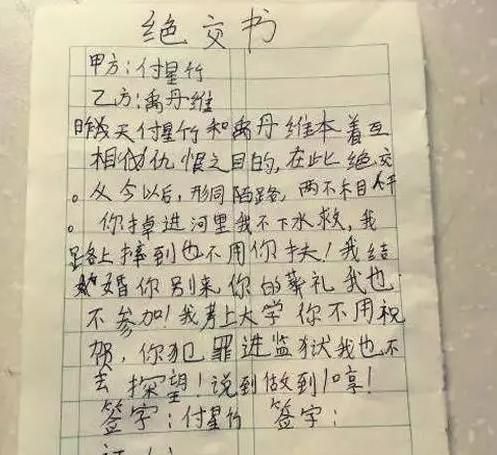 绝交书
甲方：付星竹
乙方：禹丹维
昨天付星竹和禹丹维本着互
相仇恨之目的，在此绝交
。从今以后，形同陌路，两不相干
。你掉进河里我不下水救，我
路上摔到也不用你扶！我结
婚你别来你的葬礼我也
不参加！我考上大学你不用祝
贺，你犯罪进监狱我也不
去探望！说到做到！哼！
签字：付星竹 签字：